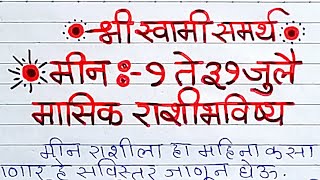 श्री स्वामी समर्थ
मीन :- १ ते ३१ जुलै
मासिक राशीभविष्य
मीन राशीला हा महिना कसा
हे सविस्तर जाणून घेऊ.